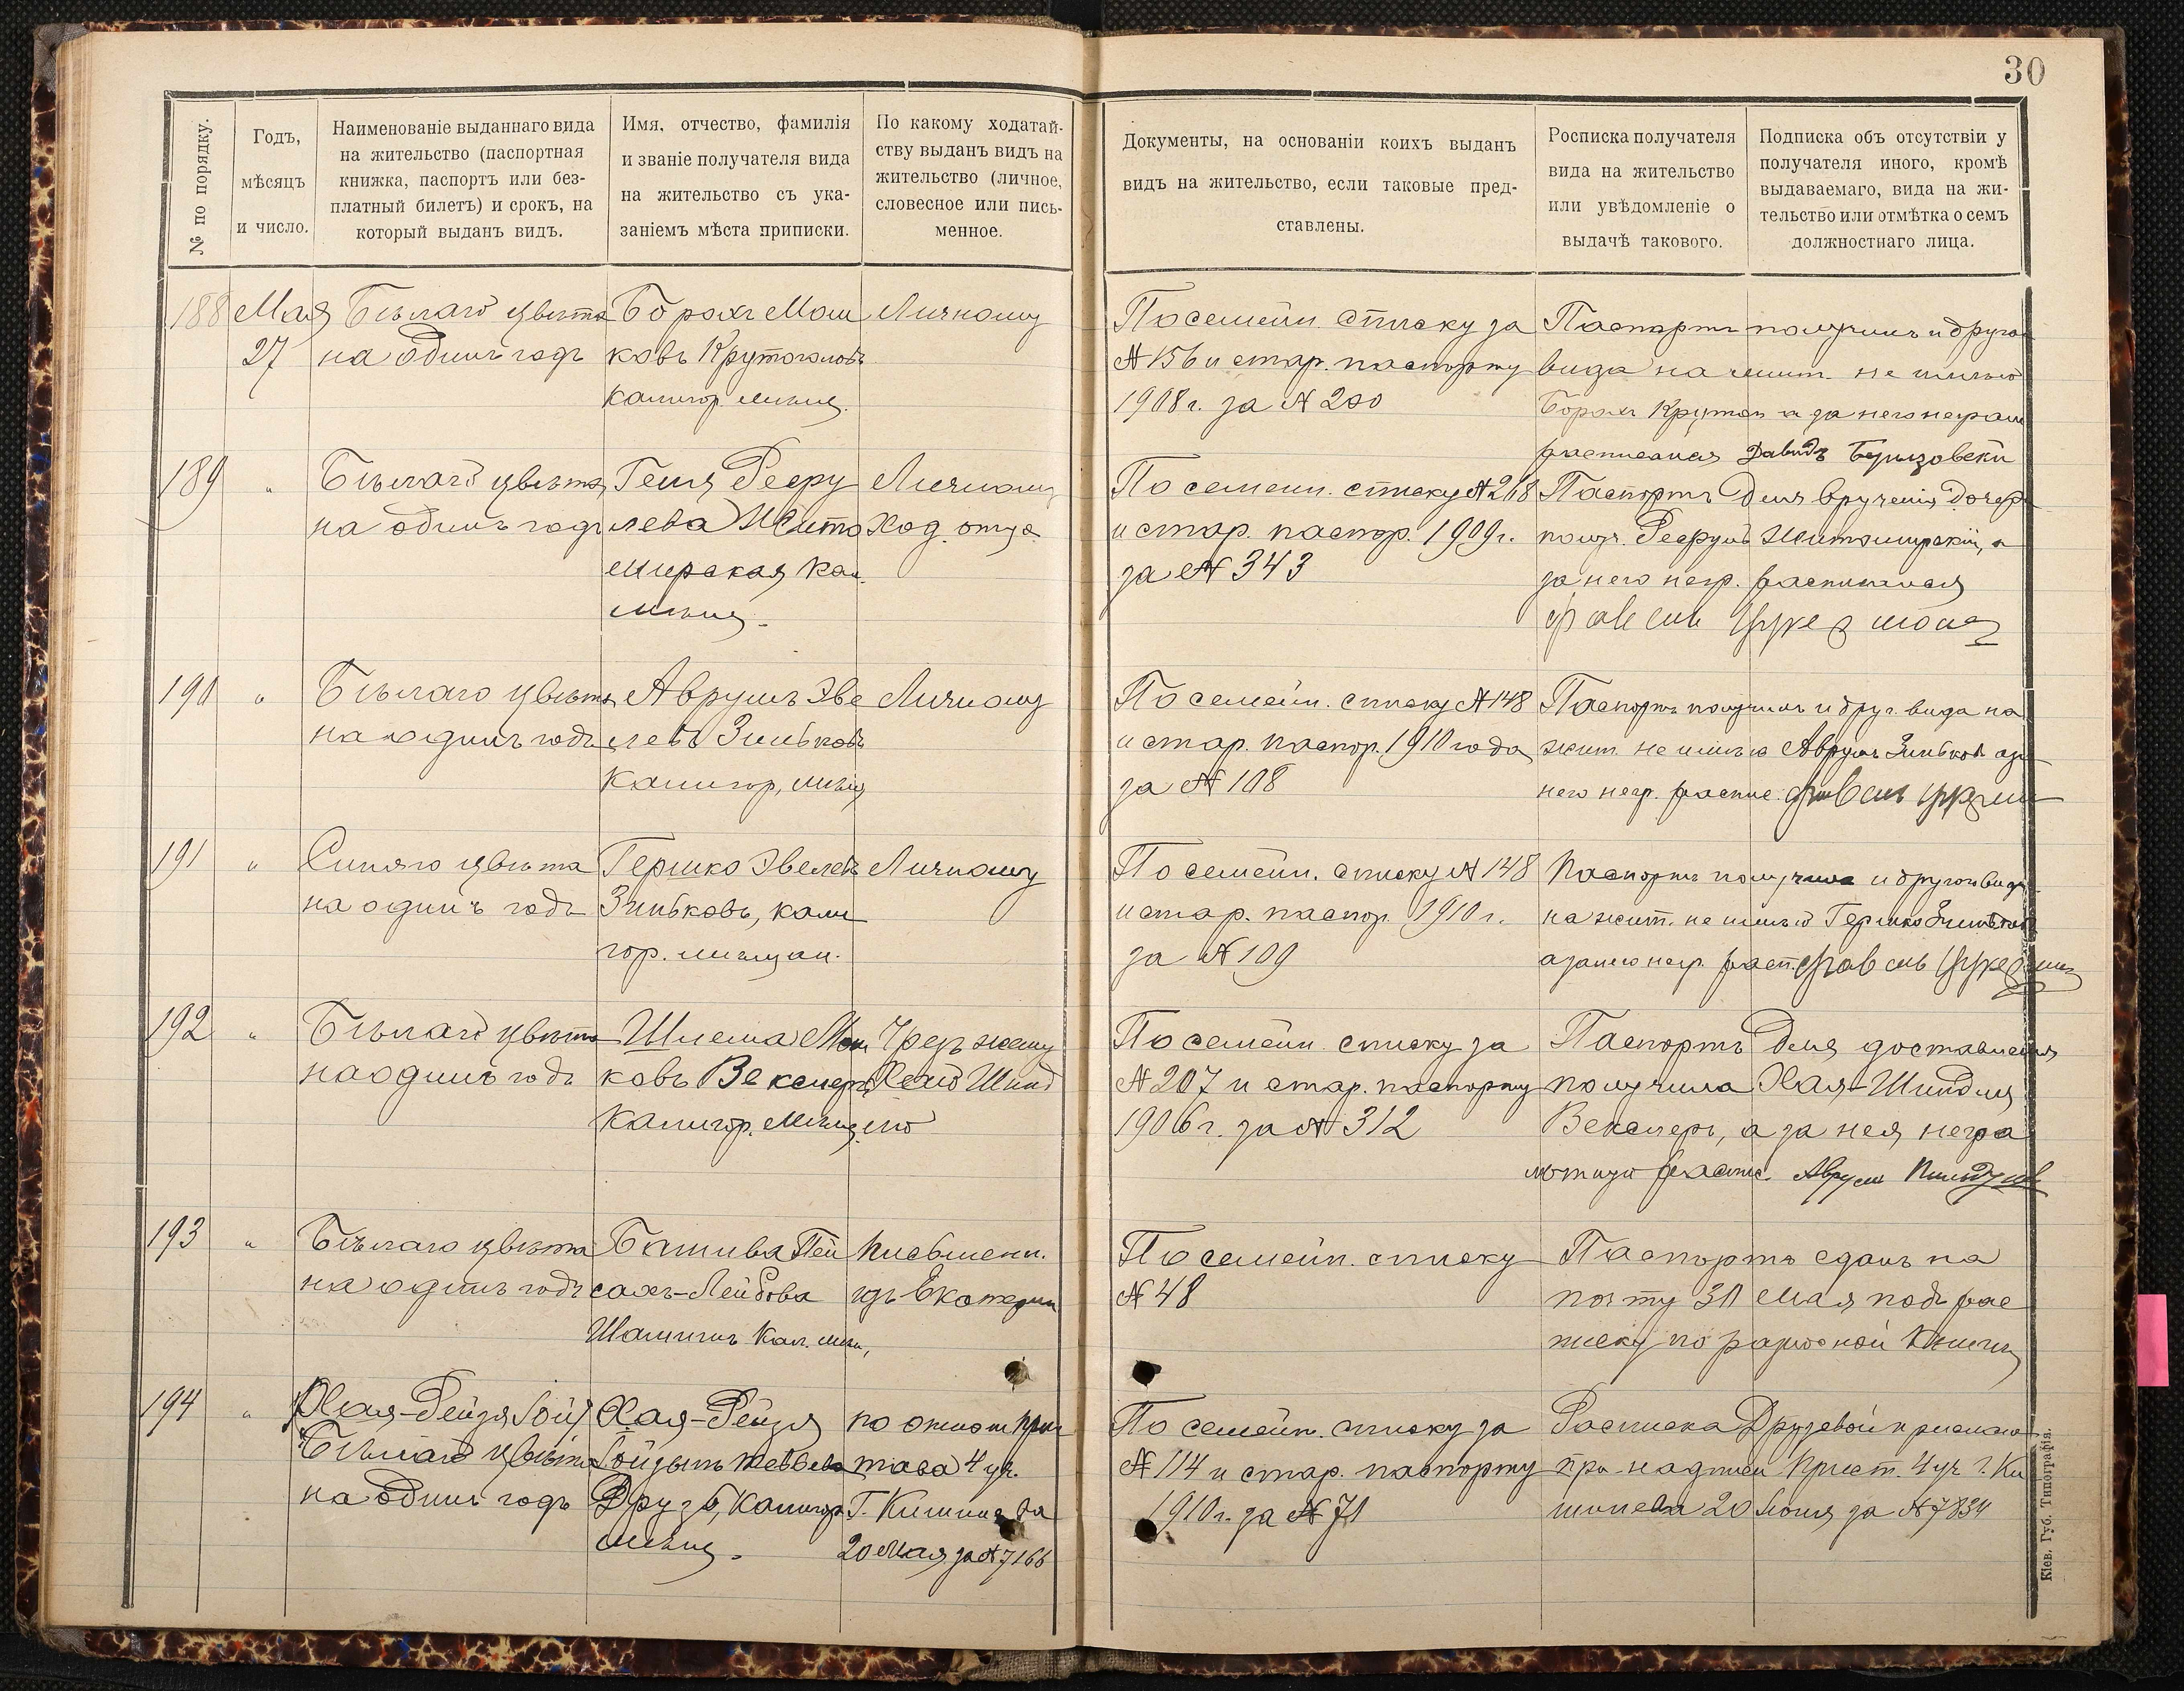 30
№ по порядку.
Годъ,
мѣсяцъ
и число.
Наименованіе выданнаго вида
на жительство (паспортная
книжка, паспортъ или без-
платный билетъ) и срокъ, на
который выданъ видъ.
Имя, отчество, фамилія
и званіе получателя вида
на жительство съ ука-
заніемъ мѣста приписки.
По какому ходатай-
ству выданъ видъ на
жительство (личное,
словесное или пись-
менное.
Документы, на основаніи коихъ выданъ
видъ на жительство, если таковые пред-
ставлены.
Росписка получателя
вида на жительство
или увѣдомленіе о
выдачѣ такового.
Подписка объ отсутствіи у
получателя иного, кромѣ
выдаваемаго, вида на жи-
тельство или отмѣтка о семъ
должностнаго лица.
188
Мая
27
Бѣлаго цвѣта
на одинъ годъ
Борохъ Мош
ковъ Крутоголовъ
калигор. мѣщ.
Личному
По семейн. списку за
№ 156 и стар. паспорту
1908 г. за № 200
Паспортъ получилъ и другого
вида на жит. не имѣю
Борохъ а за него неграм
расписался Давидъ
189
"
Бѣлаго цвѣта
на одинъ годъ
Геня Исеру
лева Жито
мирская кал.
мѣщ.
Личному
ход. отца
По семейн. списку № 268
и стар. паспор. 1909 г.
за № 343
Паспортъ для врученія дочери
получ. Житомирскій, а
за него негр. расписался
190
"
Бѣлаго цвѣта
на одинъ годъ
Аврумъ Эве
левъ Зиньковъ
калигор. мѣщ
Личному
По семейн. списку № 148
и стар. паспор. 1910 года
за № 108
Паспортъ получилъ и друг. вида на
жит. не имѣю Аврумъ Зиньковъ а за
него негр. распис.
191
"
Синяго цвѣта
на одинъ годъ
Гершко Эвелевъ
Зиньковъ, кали
гор. мѣщан.
Личному
По семейн. списку № 148
и стар. паспор. 1910 г.
за № 109
Паспортъ получилъ и другого вида
на жит. не имѣю Гершко Зиньковъ
а за него негр. расп.
192
"
Бѣлаго цвѣта
на одинъ годъ
Шлема Мош
ковъ Векслеръ
калигор. мѣщ.
Чрезъ жену
Хаю Шинд
лю
По семейн. списку за
№ 207 и стар. паспорту
1906 г. за № 312
Паспортъ для доставленія
получила Хая-Шиндля
Векслеръ, а за нея негра
мотную распис. Аврумъ
193
"
Бѣлаго цвѣта
на одинъ годъ
Башива Пей
сахъ-Лейбова
кал. мѣщ,
Письменн.
изъ Екатерин
По семейн. списку
№ 48
Паспортъ сданъ на
почту 30 Мая подъ рас
писку по разносной книги
194
"
Хая-Рейзя
Бѣлаго цвѣта
на одинъ годъ
Хая-Рейзя
Друзь, калигор.
мѣщ.
по отнош. прис
тава 4 уч.
г. Кишинева
20 Мая за № 7166
По семейн. списку за
№ 114 и стар. паспорту
1910 г. за № 71
Расписка Друзевой прислана
при надписи Прист. 4 уч. г. Ки
шинева 20 Іюня за № 7834
Кіев. Губ. Типографія.